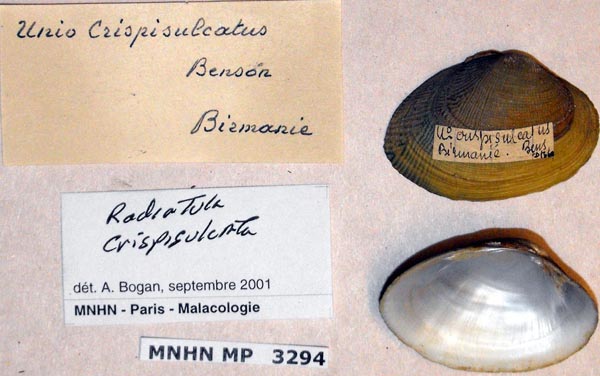 Unio Crispisulcatus
Benson
Birmanie
Radiatula
crispisulcata
dét. A. Bogan, septembre 2001
MNHN - Paris - Malacologie
MNHN MP 3294
U. crispisulcatus
Birmanie. Bens